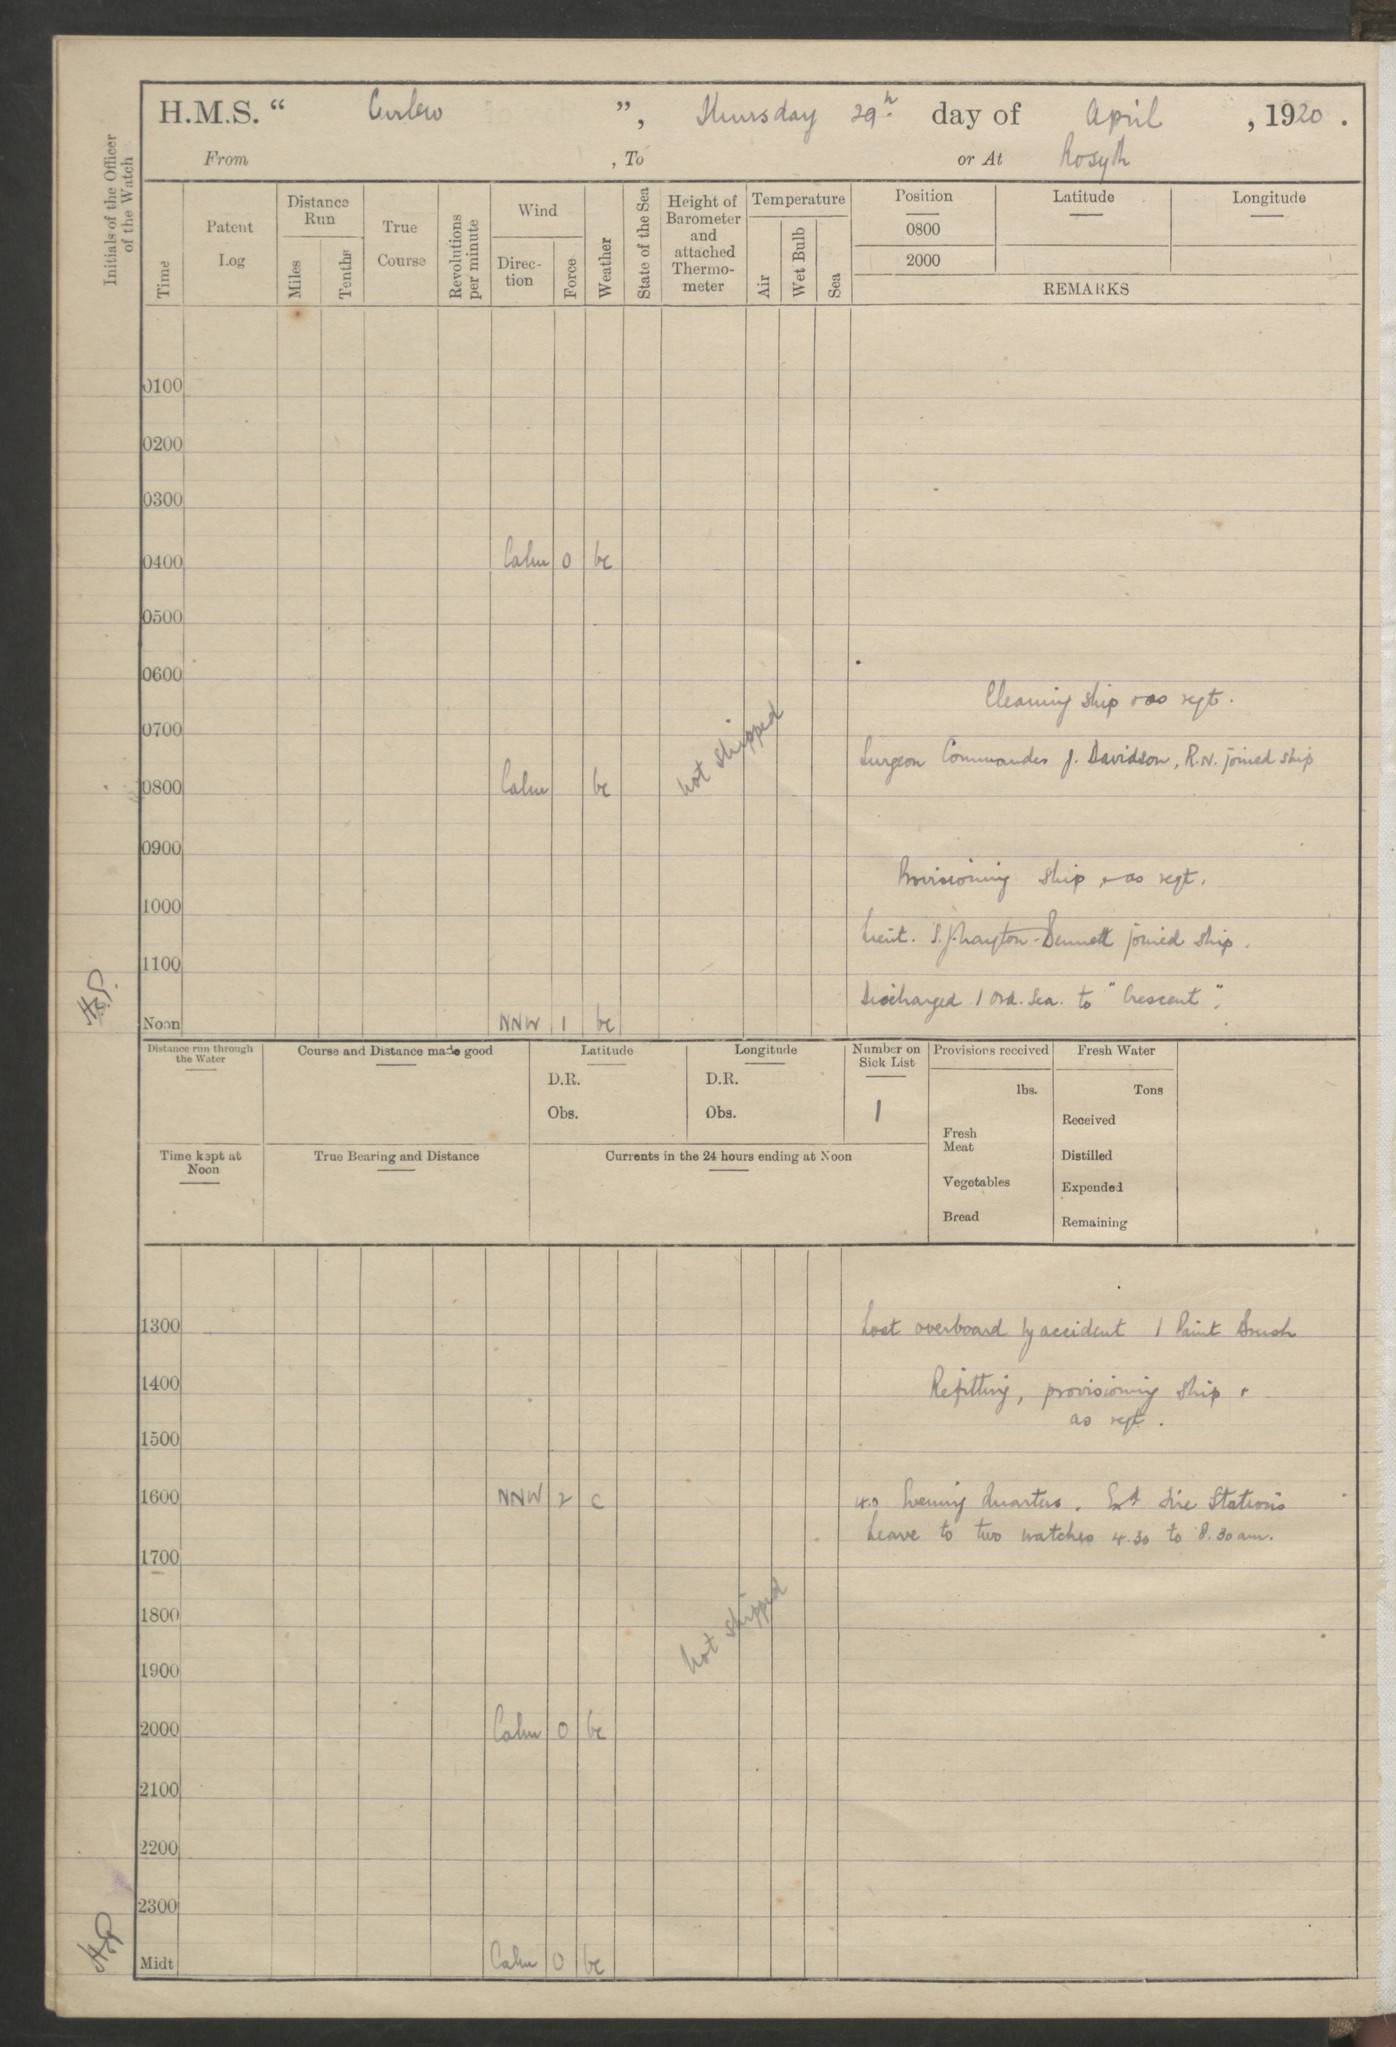 H.M.S. “ Curlew ”, Thursday 29th day of April, 1920.
From , To or At Rosyth
Initials of the Officer of the Watch
Time
Patent Log
Distance Run
Miles
Tenths
True Course
Revolutions per minute
Wind
Direc- tion
Force
Weather
State of the Sea
Height of Barometer and attached Thermo- meter
Temperature
Air
Wet Bulb
Sea
Position
0800
2000
Latitude
Longitude
REMARKS
0100
0200
0300
0400 Calm 0 bc
0500
0600
Cleaning ship & as reqt.
0700
not shipped
Surgeon Commander J. Davidson, R.N. joined ship
0800 Calm bc
0900
Provisioning ship & as reqt.
1000
Lieut. S. Bennett joined ship.
1100
Discharged 1 Ord. Sea. to "Crescent".
Noon NNW 1 bc
Distance run through the Water
Course and Distance made good
Latitude
D.R.
Obs.
Longitude
D.R.
Obs.
Number on Sick List
1
Provisions received
lbs.
Fresh Meat
Vegetables
Bread
Fresh Water
Tons
Received
Distilled
Expended
Remaining
Time kept at Noon
True Bearing and Distance
Currents in the 24 hours ending at Noon
1300 Lost overboard by accident 1 Paint Brush
1400 Refitting, provisioning ship &
as reqt.
1500
1600 NNW 2 c 4.0 Evening Quarters. Exd Fire Stations
Leave to two watches 4.30 to 8.30 am.
1700
1800
not shipped
1900
2000 Calm 0 bc
2100
2200
2300
Midt Calm 0 bc